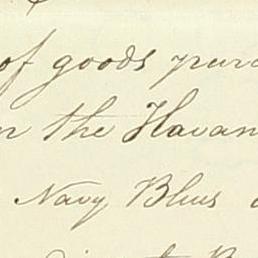 of goods pur
the Havan
Navy Blues